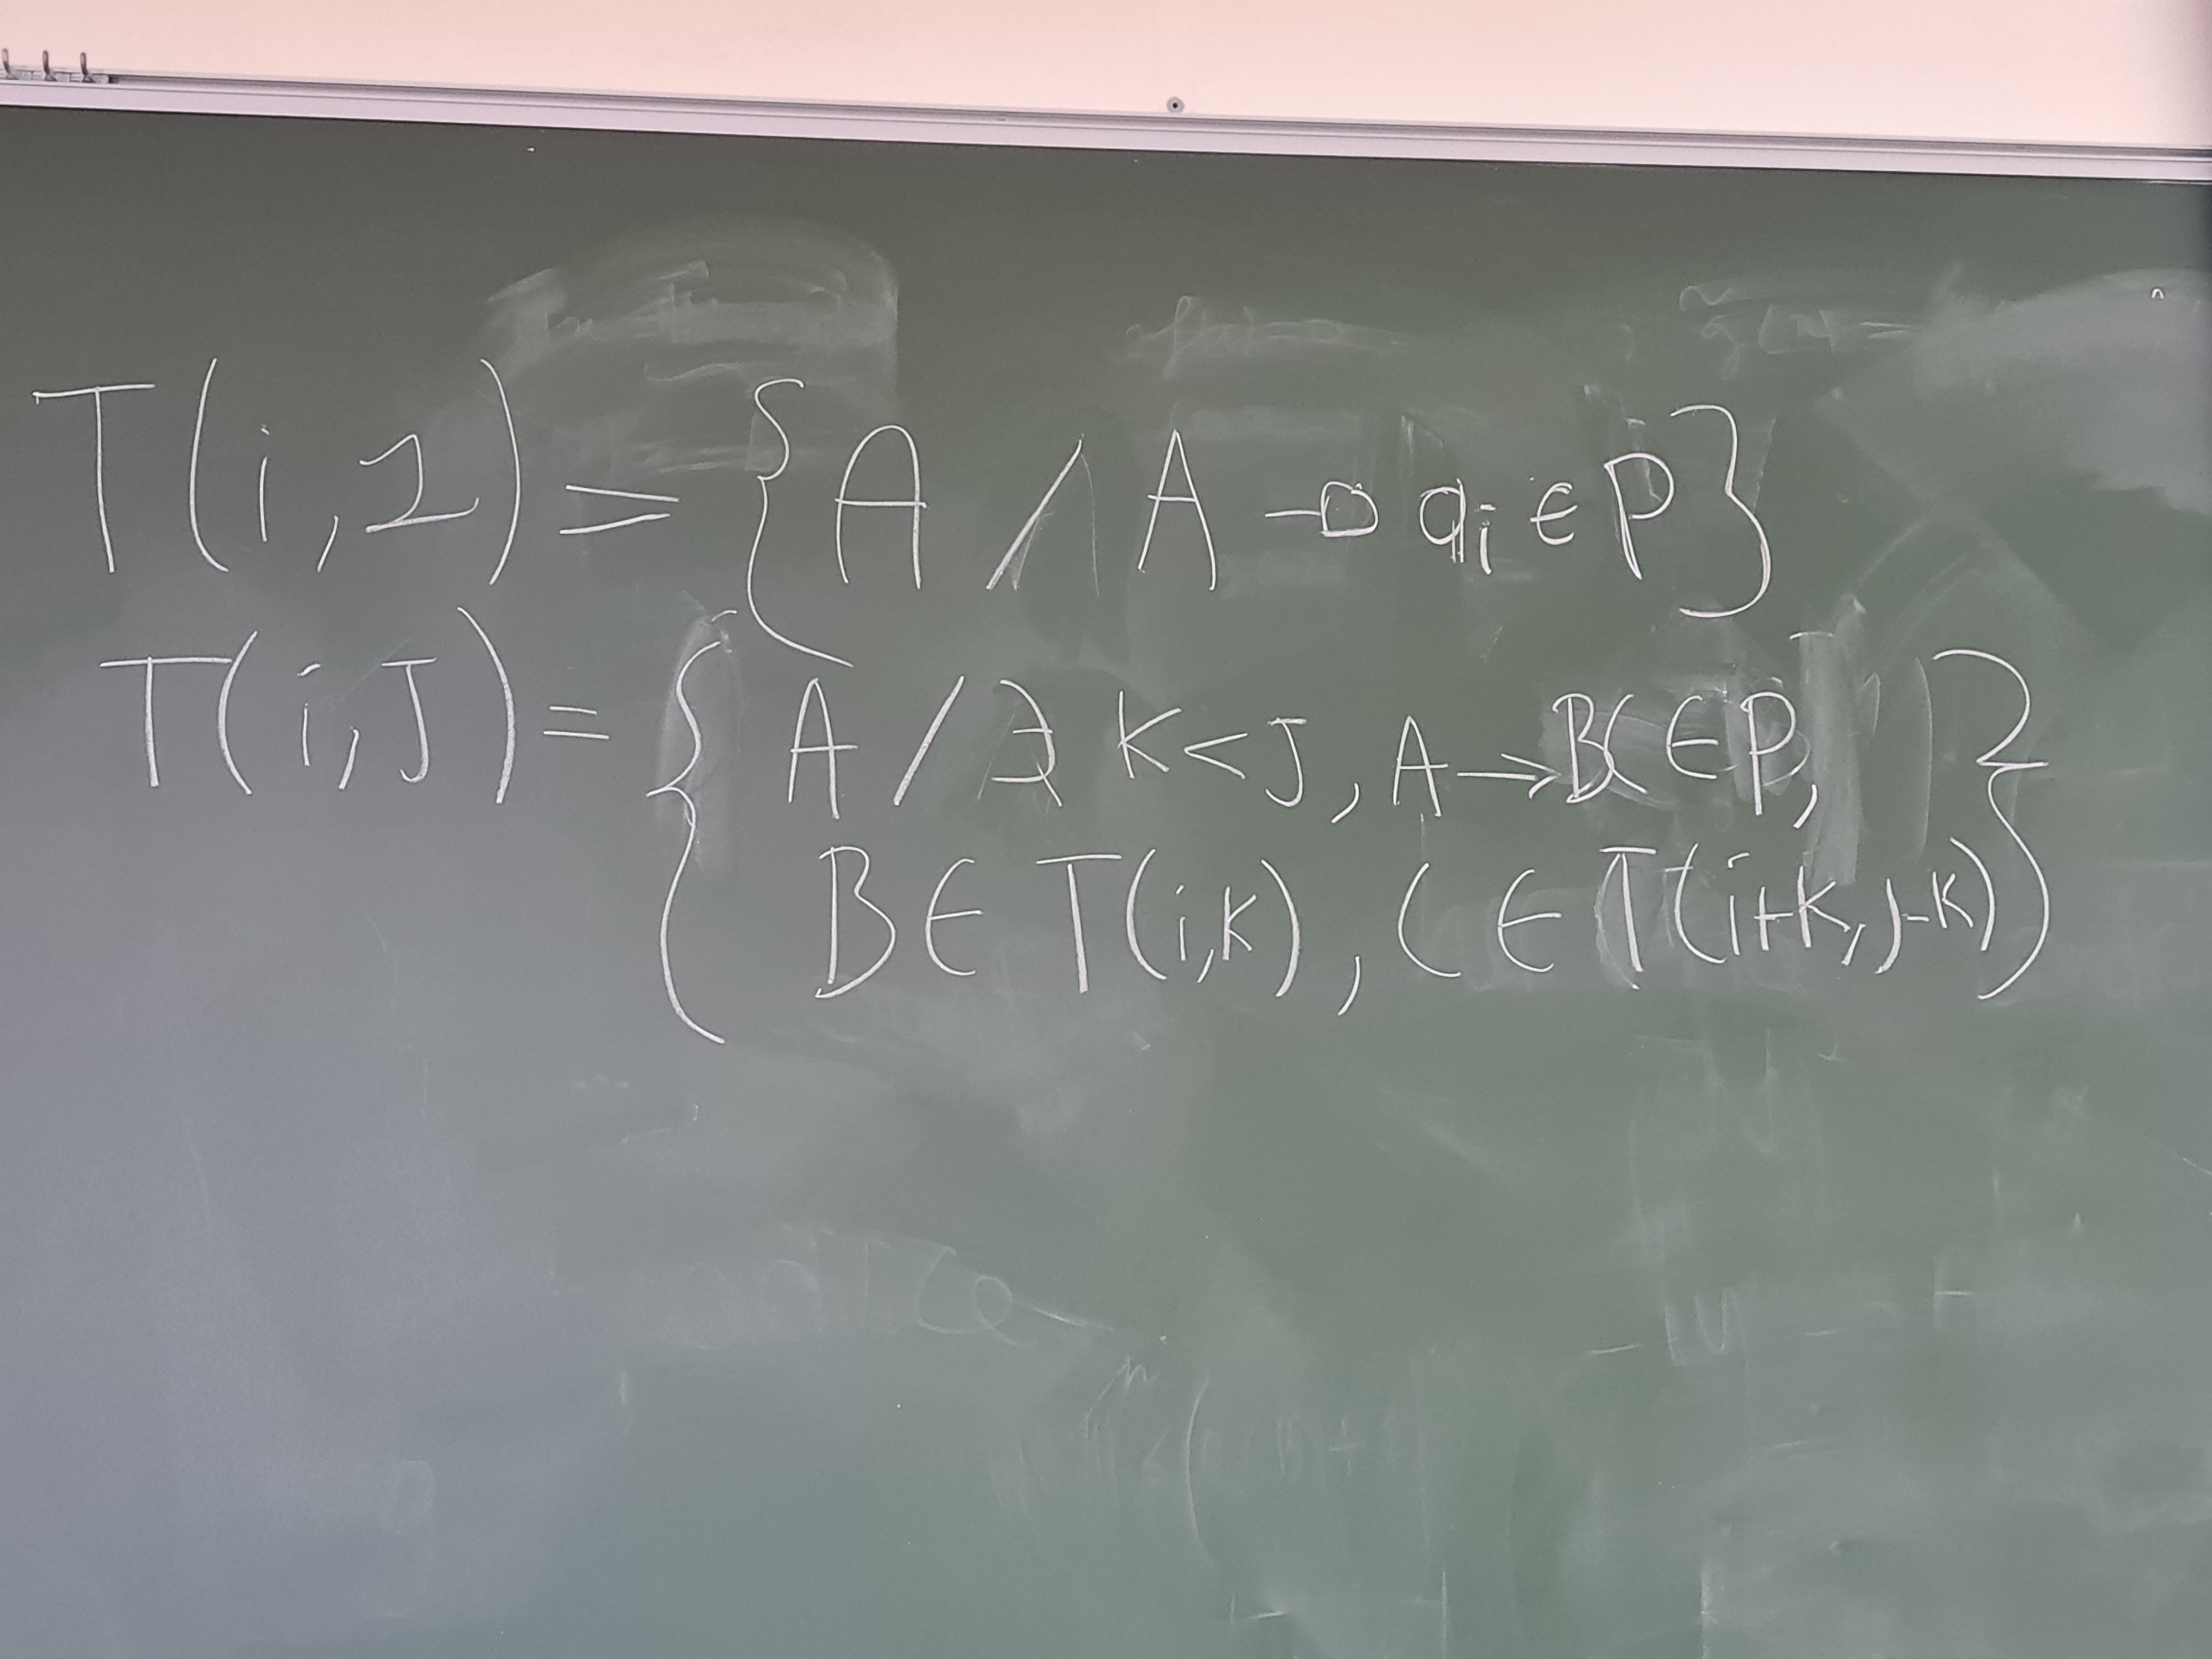 T(i,1) = {A / A → ai ∈ P}
T(i,J) = {A / ∃ K < J, A → BC ∈ P,
B ∈ T(i,K), C ∈ T(i+K, J-K)}